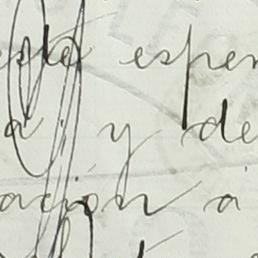 este esper
a y de
ación a